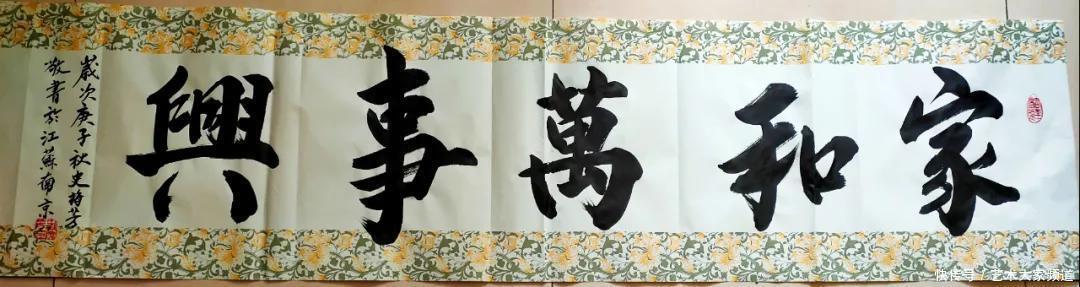 家和萬事興
歲次庚子秋史梅芳
敬書於江蘇南京
快传号/艺本大家频道